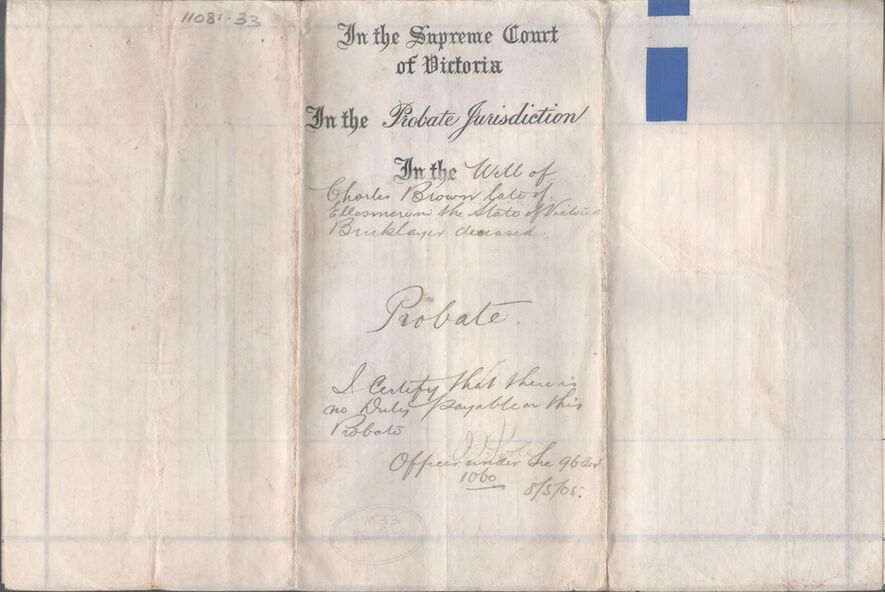 11081.33
In the Supreme Court
of Victoria
In the Probate Jurisdiction
In the Will of
Charles Brown late of
Ellesmere in the State of Victoria
Bricklayer deceased.
Probate.
I Certify that there is
no Duty payable on this
Probate
Officer under Sec 96 Act
1060
8/5/05.